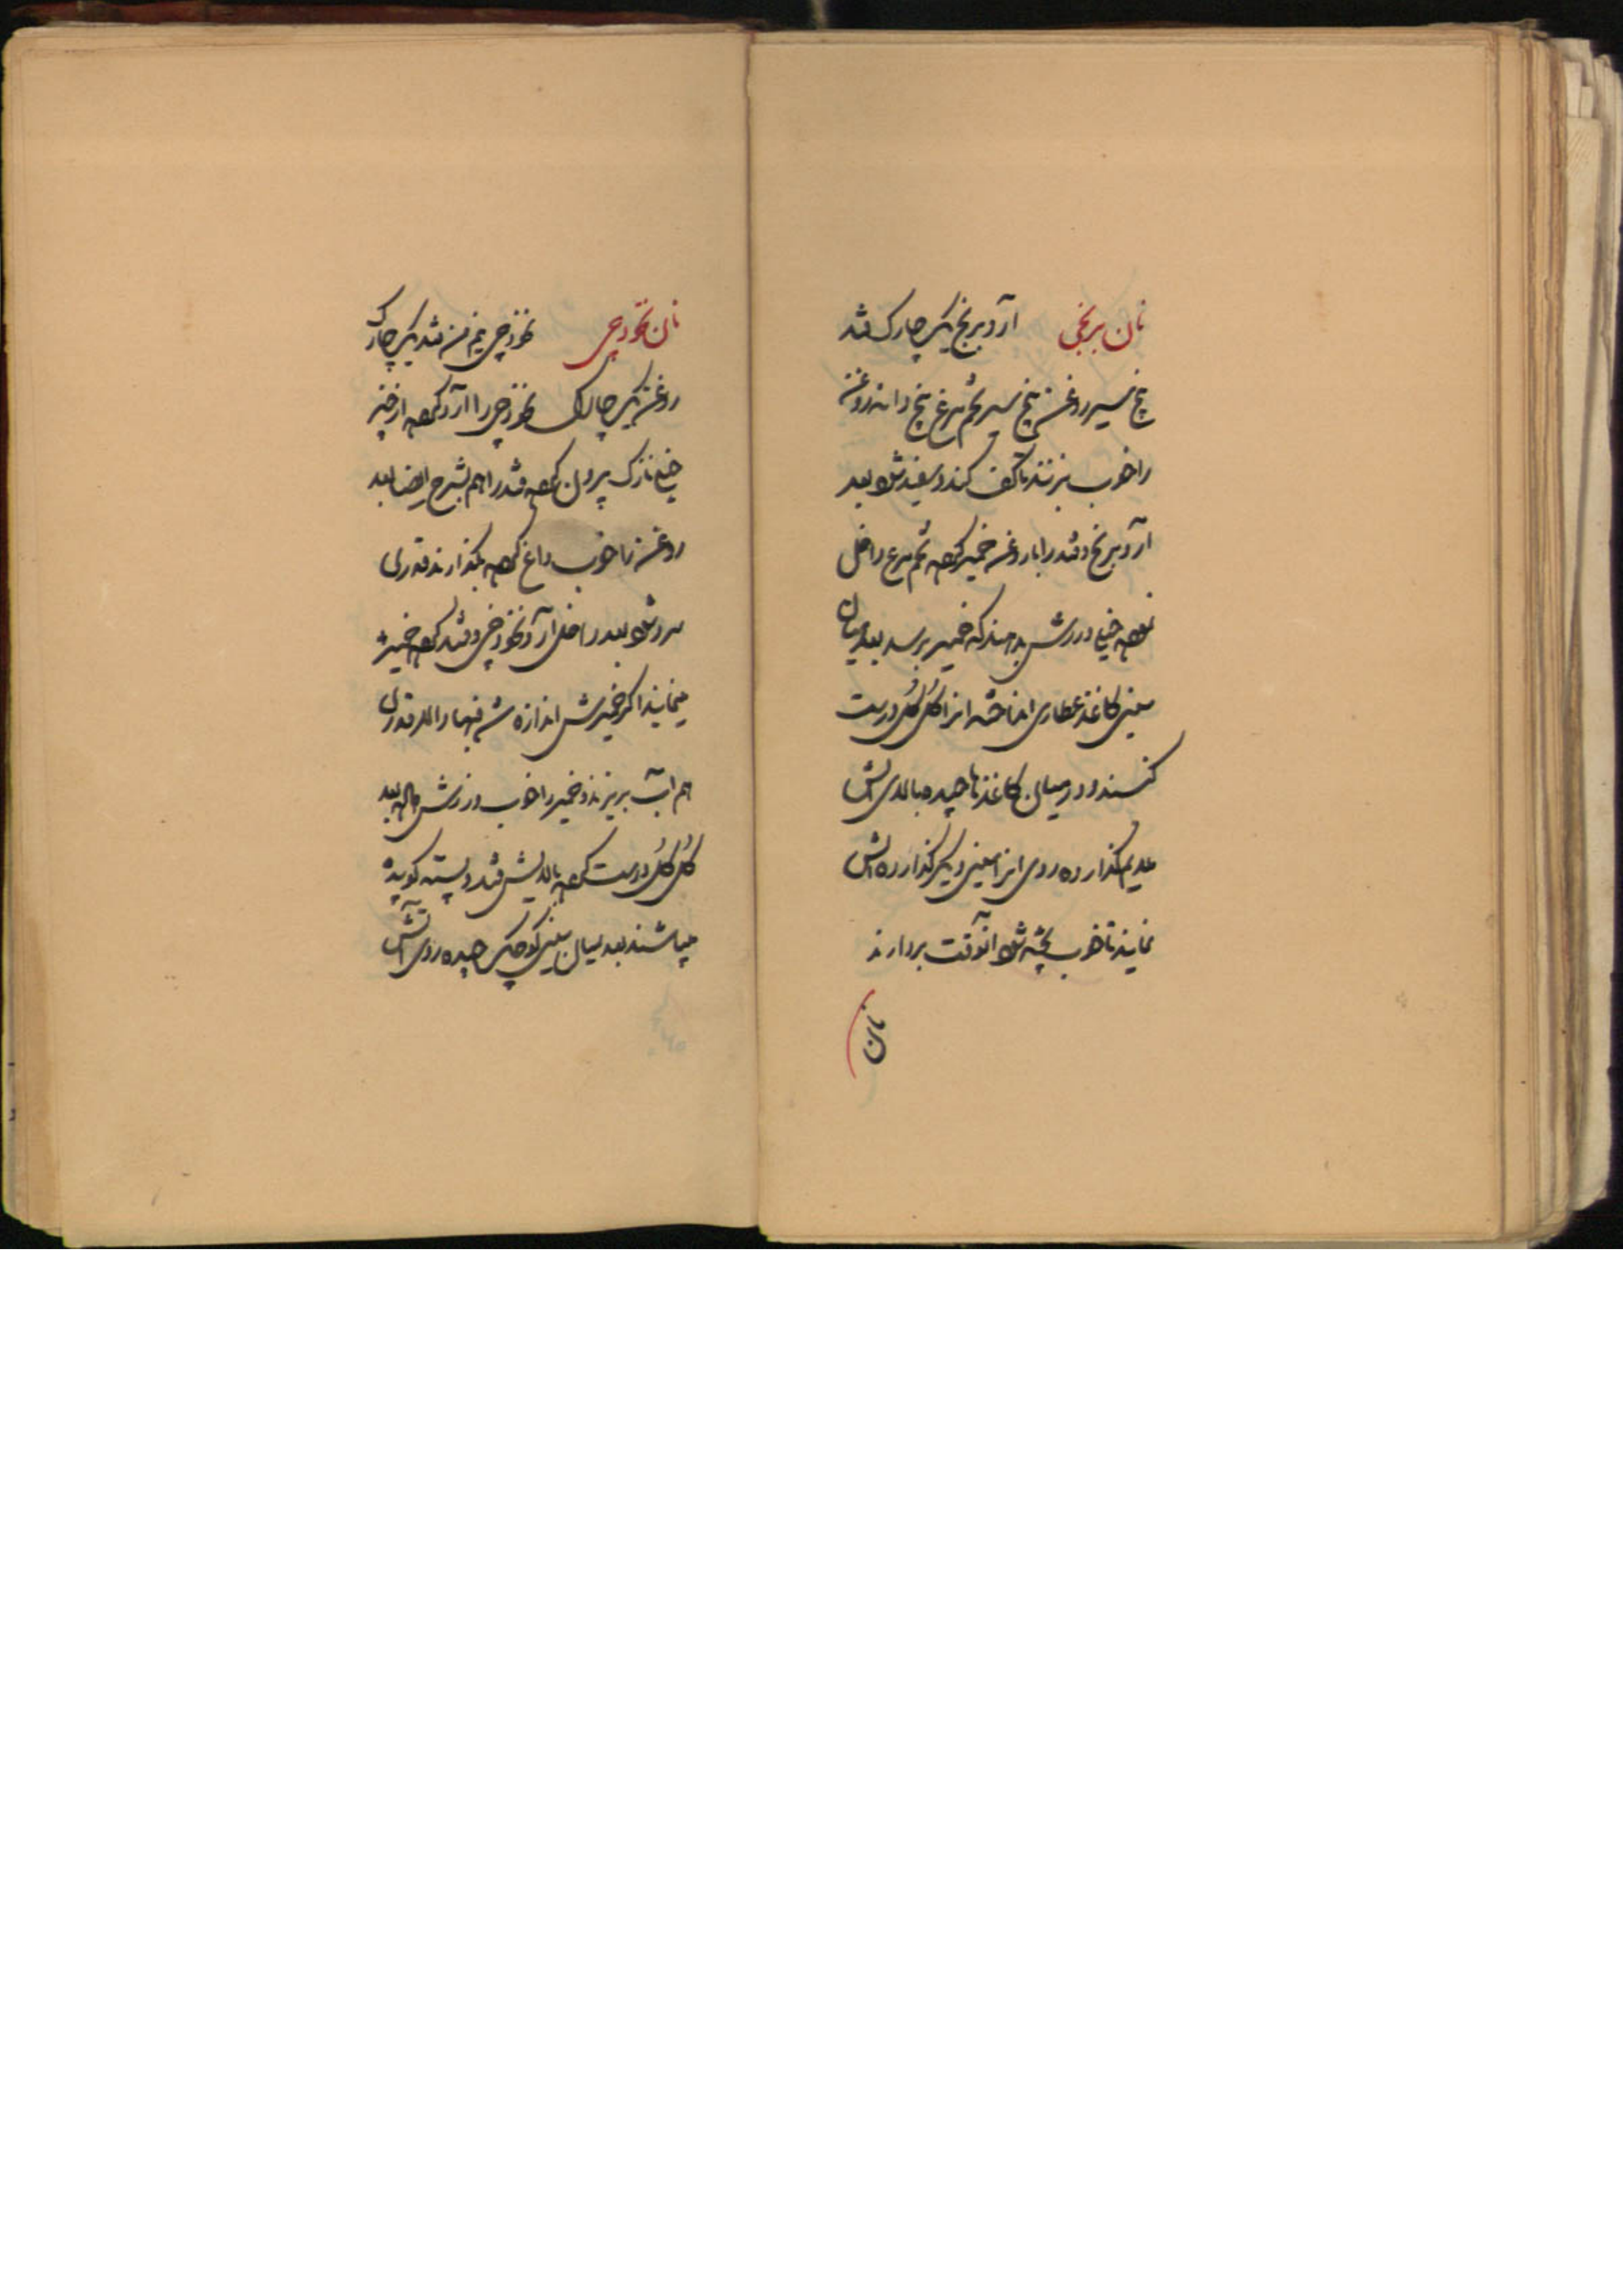 نان برنجی آرد برنج یک چارک قند
پنج سیر روغن پنج سیر تخم مرغ پنج دانه روغن
را خوب بزنند تا کف کند و سفید شود بعد
آرد برنج و قند را با روغن خمیر کرده تخم مرغ داخل
نموده خیلی ورزش بدهند که خمیر برسد بعد میان
سینی کاغذ عطاری انداخته انرا گل گل درست
کنند و در میان کاغذها چیده بالای آتش
ملایم گذارده روی انرا سینی دیگر گذارده آتش
نمایند تا خوب پخته شود آنوقت بردارند
نان
نان نخودچی نخودچی نیم من قند یک چارک
روغن یک چارک نخودچی را آرد کرده از
خیلی نازک بیرون کرده قند را هم بشرح ایضا بعد
روغن را خوب داغ کرده بگذارند قدری
سرد شود بعد داخل آرد نخودچی و قند کرده خمیرش
مینمایند اگر خمیرش اندازه شد فبها والا قدری
هم آب بریزند و خمیر را خوب ورزش داده بعد
گل گل درست کرده بالایش قند و پسته کوبیده
میپاشند بعد میان سینی کوچک چیده روی آتش